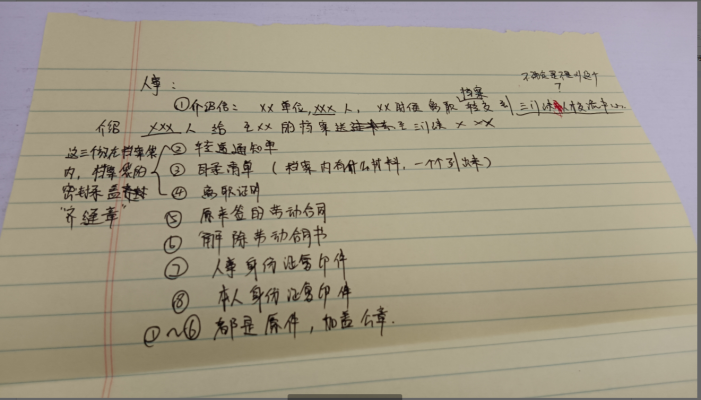 人事：
不确定是不是叫这个
?
①介绍信：xx单位，xxx人，xx时候离职，档案转交到三门峡人才交流中心
介绍 xxx 人 给 把xx的档案送 至三门峡 x xx
这三份在档案袋内，档案袋的密封条盖"齐缝章"
② 转递通知单
③ 目录清单（档案内有什么材料，一个个列出来）
④ 离职证明
⑤ 原来签的劳动合同
⑥ 解除劳动合同书
⑦ 人事身份证复印件
⑧ 本人身份证复印件
①～⑥ 都是原件，加盖公章.